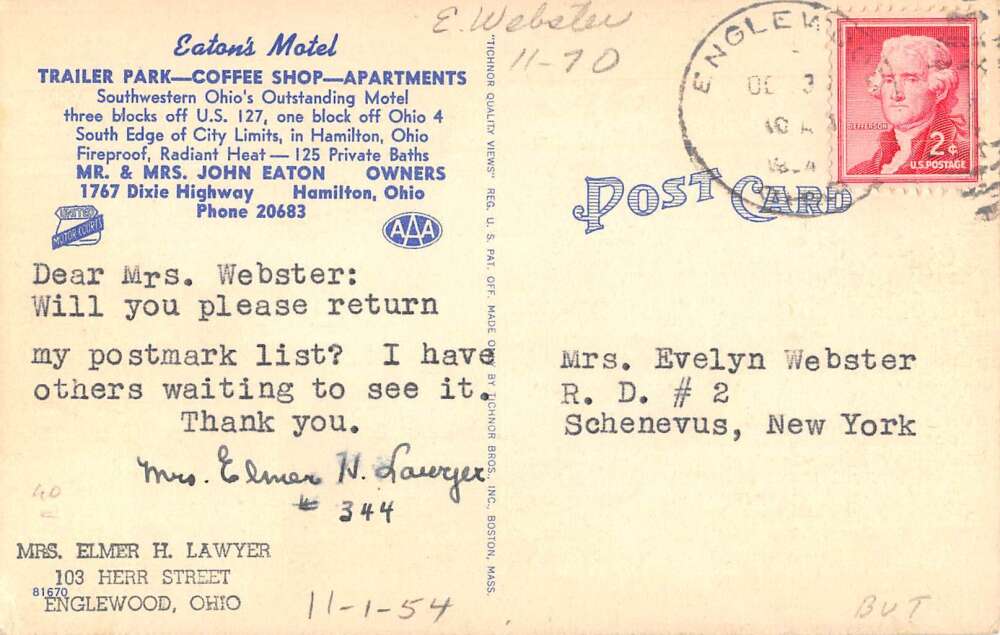 E. Webster
11-70
Eaton's Motel
TRAILER PARK—COFFEE SHOP—APARTMENTS
Southwestern Ohio's Outstanding Motel
three blocks off U.S. 127, one block off Ohio 4
South Edge of City Limits, in Hamilton, Ohio
Fireproof, Radiant Heat — 125 Private Baths
MR. & MRS. JOHN EATON OWNERS
1767 Dixie Highway Hamilton, Ohio
Phone 20683
UNITED
MOTOR COURTS
AAA
Dear Mrs. Webster:
Will you please return
my postmark list? I have
others waiting to see it.
Thank you.
Mrs. Elmer H. Lawyer
# 344
40
MRS. ELMER H. LAWYER
103 HERR STREET
81670
ENGLEWOOD, OHIO
11-1-54
"TICHNOR QUALITY VIEWS" REG. U. S. PAT. OFF. MADE ONLY BY TICHNOR BROS. INC., BOSTON, MASS.
JEFFERSON
2¢
U.S. POSTAGE
POST CARD
Mrs. Evelyn Webster
R. D. # 2
Schenevus, New York
BUT